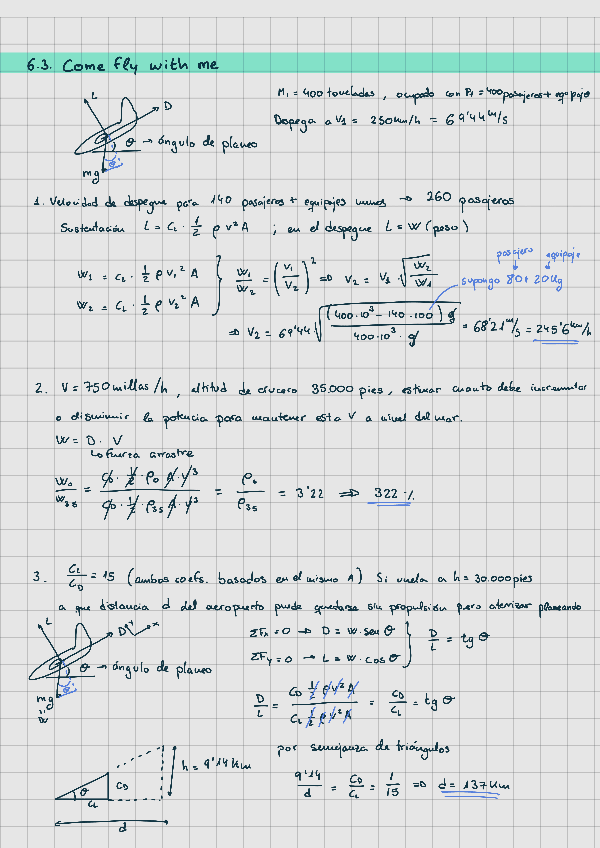 6.3. Come fly with me
L
D
θ → ángulo de planeo
θ
mg
M₁ = 400 toneladas, ocupado con P₁ = 400 pasajeros + equipaje
Despega a V₁ = 250 km/h = 69'44 m/s
1. Velocidad de despegue para 140 pasajeros + equipajes menos → 260 pasajeros
Sustentación L = C_L · 1/2 ρ v² A ; en el despegue L = W (peso)
W₁ = C_L · 1/2 ρ v₁² A
W₂ = C_L · 1/2 ρ v₂² A
W₁/W₂ = (V₁/V₂)² ⇒ V₂ = V₁ √(W₂/W₁)
pasajero equipaje
supongo 80 + 20 kg
⇒ V₂ = 69'44 √((400·10³ − 140·100) g / 400·10³ · g) = 68'21 m/s = 245'6 km/h
2. V = 750 millas/h, altitud de crucero 35.000 pies, estimar cuanto debe incrementar
o disminuir la potencia para mantener esta V a nivel del mar.
W = D · V
↳ fuerza arrastre
W₀/W₃₅ = (C_D · 1/2 · ρ₀ A · V³)/(C_D · 1/2 · ρ₃₅ A · V³) = ρ₀/ρ₃₅ = 3'22 ⇒ 322 %
3. C_L/C_D = 15 (ambos coefs. basados en el mismo A) Si vuela a h = 30.000 pies
a que distancia d del aeropuerto puede quedarse sin propulsión pero aterrizar planeando
L
D
y
x
θ → ángulo de planeo
θ
mg
W
ΣFx = 0 → D = W · sen θ
ΣFy = 0 → L = W · cos θ
D/L = tg θ
D/L = (C_D 1/2 ρ v² A)/(C_L 1/2 ρ v² A) = C_D/C_L = tg θ
h = 9'14 km
θ
C_D
C_L
d
por semejanza de triángulos
9'14/d = C_D/C_L = 1/15 ⇒ d = 137 km